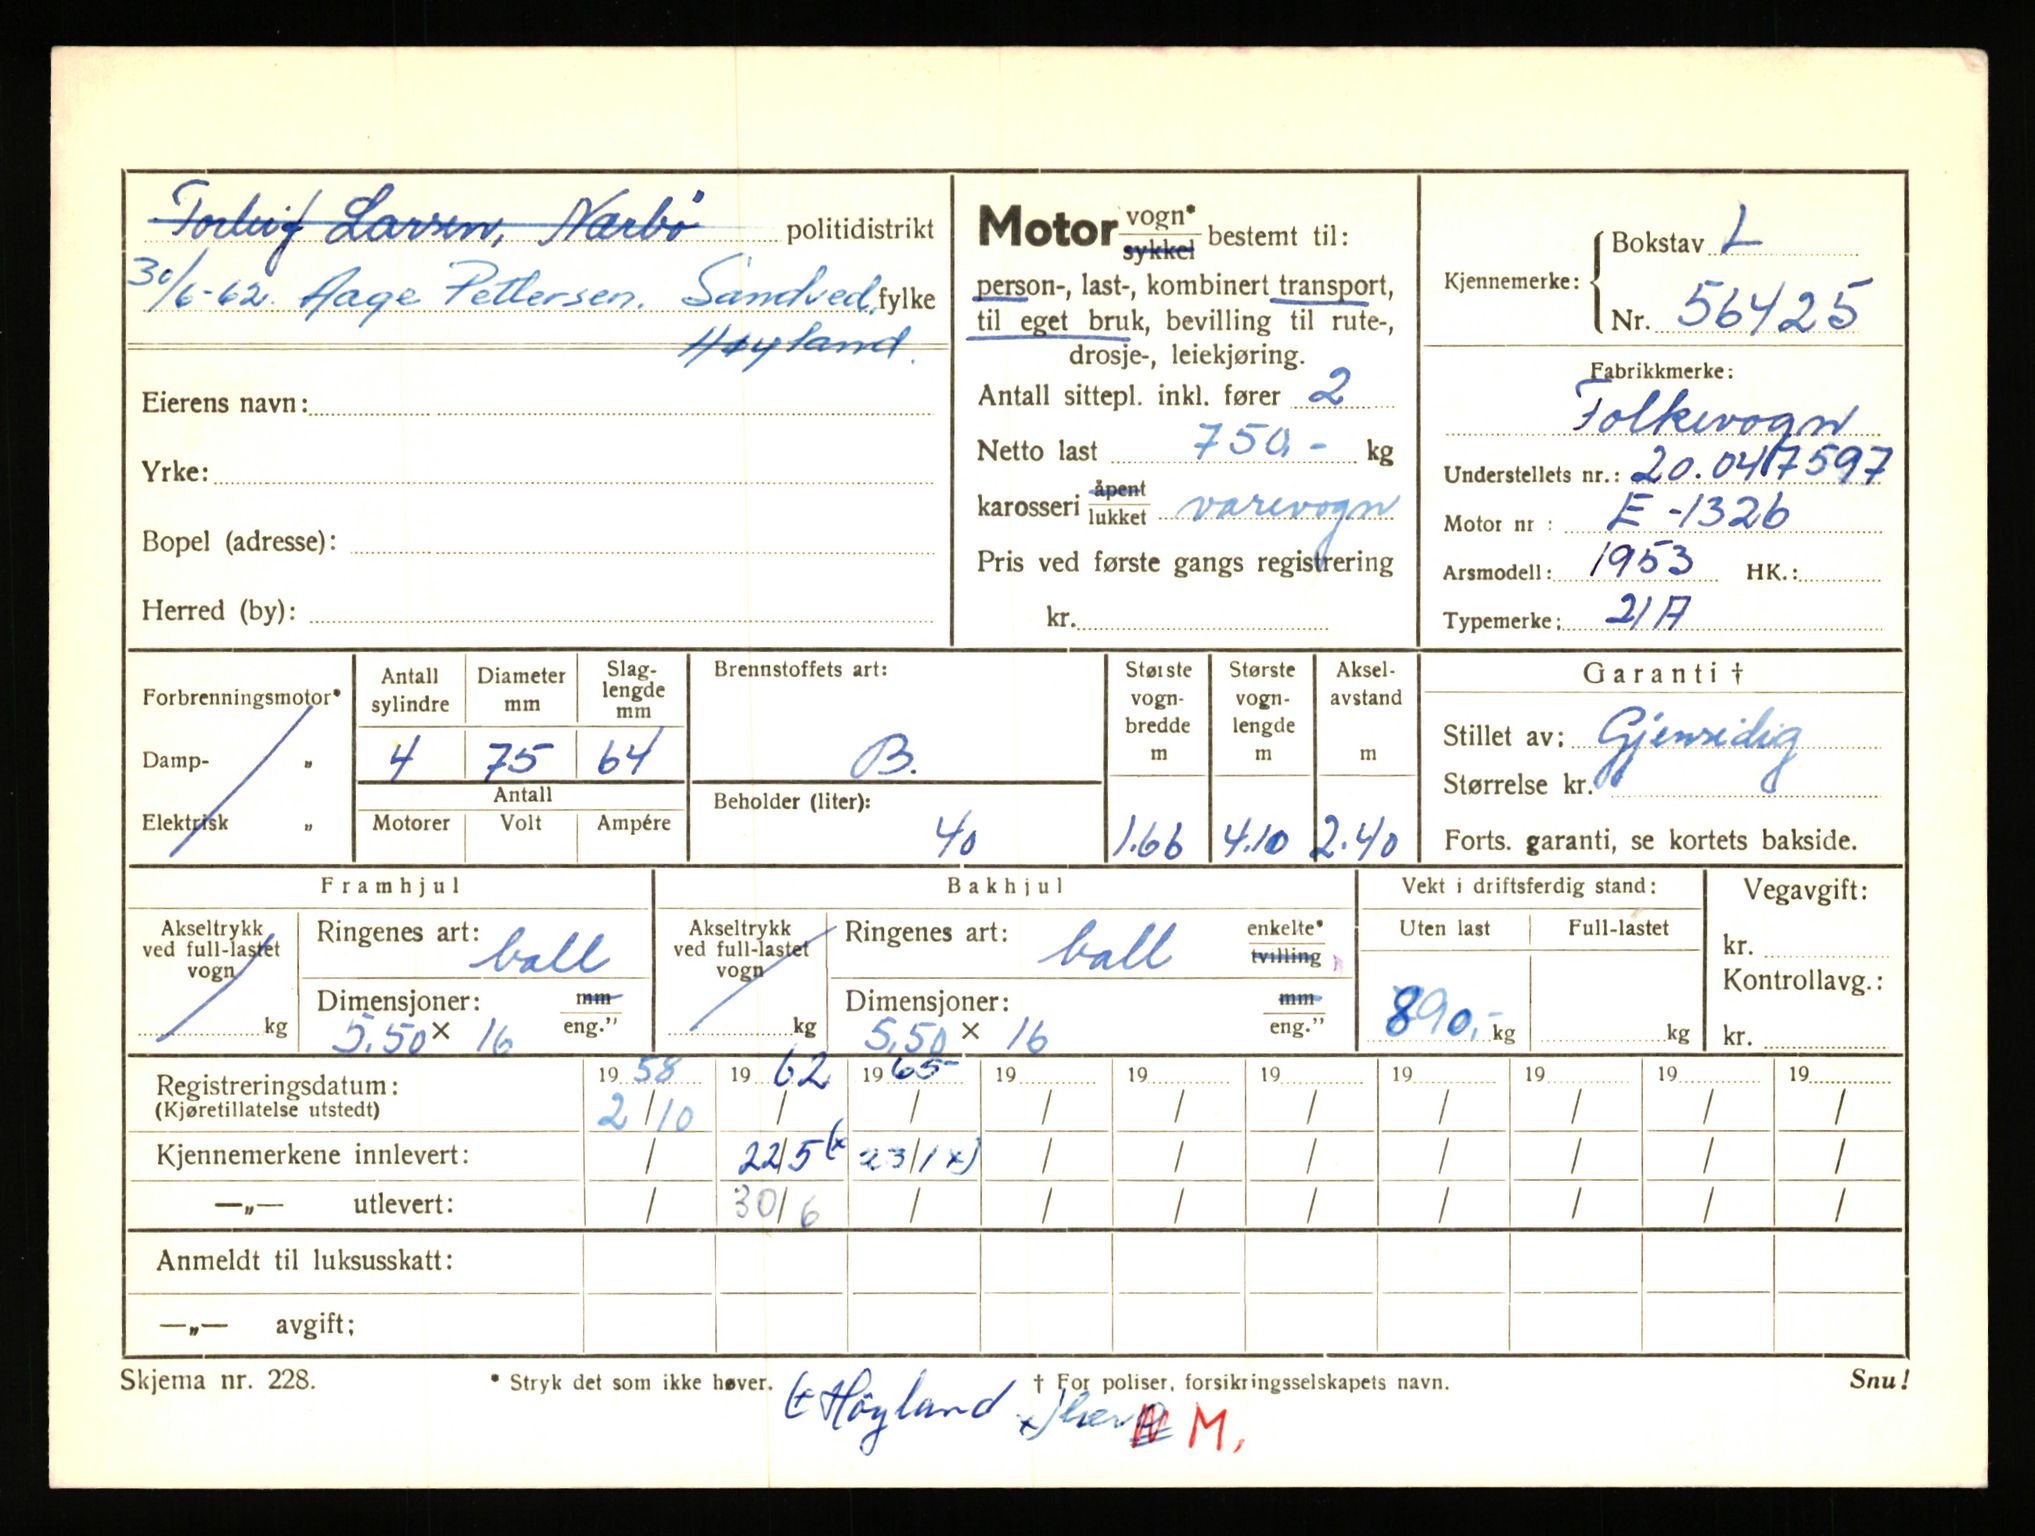 Torleif Larsen, Nærbö politidistrikt
30/6-62. Aage Pettersen. Sandved, fylke
Høyland.
Eierens navn:
Yrke:
Bopel (adresse):
Herred (by):
Motor vogn* sykkel bestemt til:
person-, last-, kombinert transport,
til eget bruk, bevilling til rute-,
drosje-, leiekjøring.
Antall sittepl. inkl. fører 2
Netto last 750,- kg
karosseri åpent lukket varevogn
Pris ved første gangs registrering
kr.
Kjennemerke: Bokstav L
Nr. 56425
Fabrikkmerke:
Folkevogn
Understellets nr.: 20.047597
Motor nr : E-1326
Arsmodell: 1953 HK.:
Typemerke: 21A
Forbrenningsmotor*
Damp- „
Elektrisk „
Antall sylindre Diameter mm Slaglengde mm
4 75 64
Antall
Motorer Volt Ampére
Brennstoffets art:
B.
Beholder (liter):
40
Største vognbredde m
1.66
Største vognlengde m
4.10
Akselavstand m
2.40
Garanti †
Stillet av: Gjensidig
Størrelse kr.
Forts. garanti, se kortets bakside.
Framhjul
Akseltrykk ved full-lastet vogn
kg
Ringenes art: ball
Dimensjoner: mm eng."
5,50 × 16
Bakhjul
Akseltrykk ved full-lastet vogn
kg
Ringenes art: ball enkelte* tvilling
Dimensjoner: mm eng."
5,50 × 16
Vekt i driftsferdig stand:
Uten last Full-lastet
890,- kg kg
Vegavgift:
kr.
Kontrollavg.:
kr.
Registreringsdatum: 19 58 19 62 19 65 19 19 19 19 19 19 19
(Kjøretillatelse utstedt) 2/10 / / / / / / / / /
Kjennemerkene innlevert: / 22/5 (x 23/1 x) / / / / / / /
—„— utlevert: / 30/6 / / / / / / / /
Anmeldt til luksusskatt:
—„— avgift;
Skjema nr. 228. * Stryk det som ikke høver. † For poliser, forsikringsselskapets navn. Snu!
Höyland M,